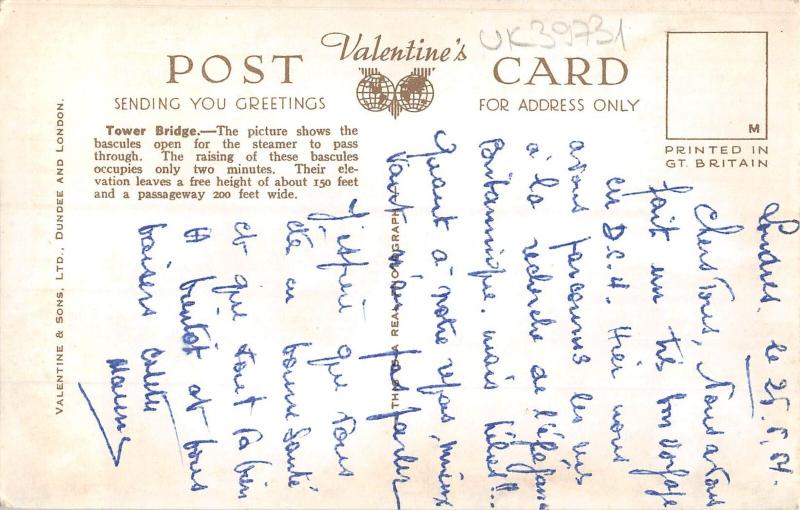 UK39731
Valentine's
POST CARD
SENDING YOU GREETINGS
FOR ADDRESS ONLY
Tower Bridge.—The picture shows the
bascules open for the steamer to pass
through. The raising of these bascules
occupies only two minutes. Their ele-
vation leaves a free height of about 150 feet
and a passageway 200 feet wide.
M
PRINTED IN
GT. BRITAIN
VALENTINE & SONS, LTD., DUNDEE AND LONDON.
THIS IS A REAL PHOTOGRAPH
Londres, le 25.5.54.
Chers tous, Nous avons
fait un très bon voyage
en D.C.4. Hier nous
avons parcouru les
à la recherche de l'élégance
Britannique, mais hélas!!..
Quant à notre repas, mieux
vaut n'en pas parler
J'espère que tous
en bonne santé
et que tout va bien
A bientôt et bons
baisers